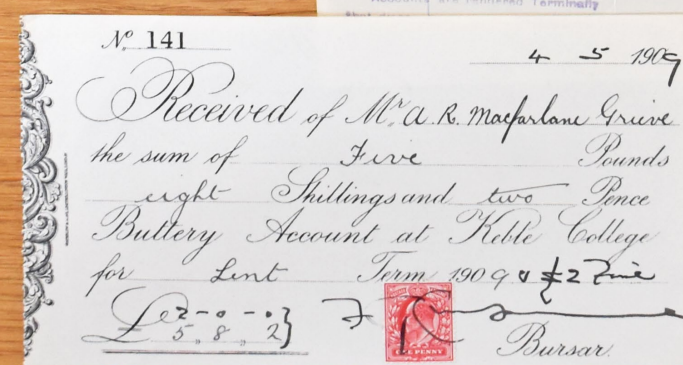 Accounts are rendered Terminally
No. 141
4 5 1909
Received of Mr. A. R. Macfarlane Grieve
the sum of Five Pounds
eight Shillings and two Pence
Buttery Account at Keble College
for Lent Term 1909 & £2 Fine
£ 2-0-0
5, 8, 2
ONE PENNY
Bursar.